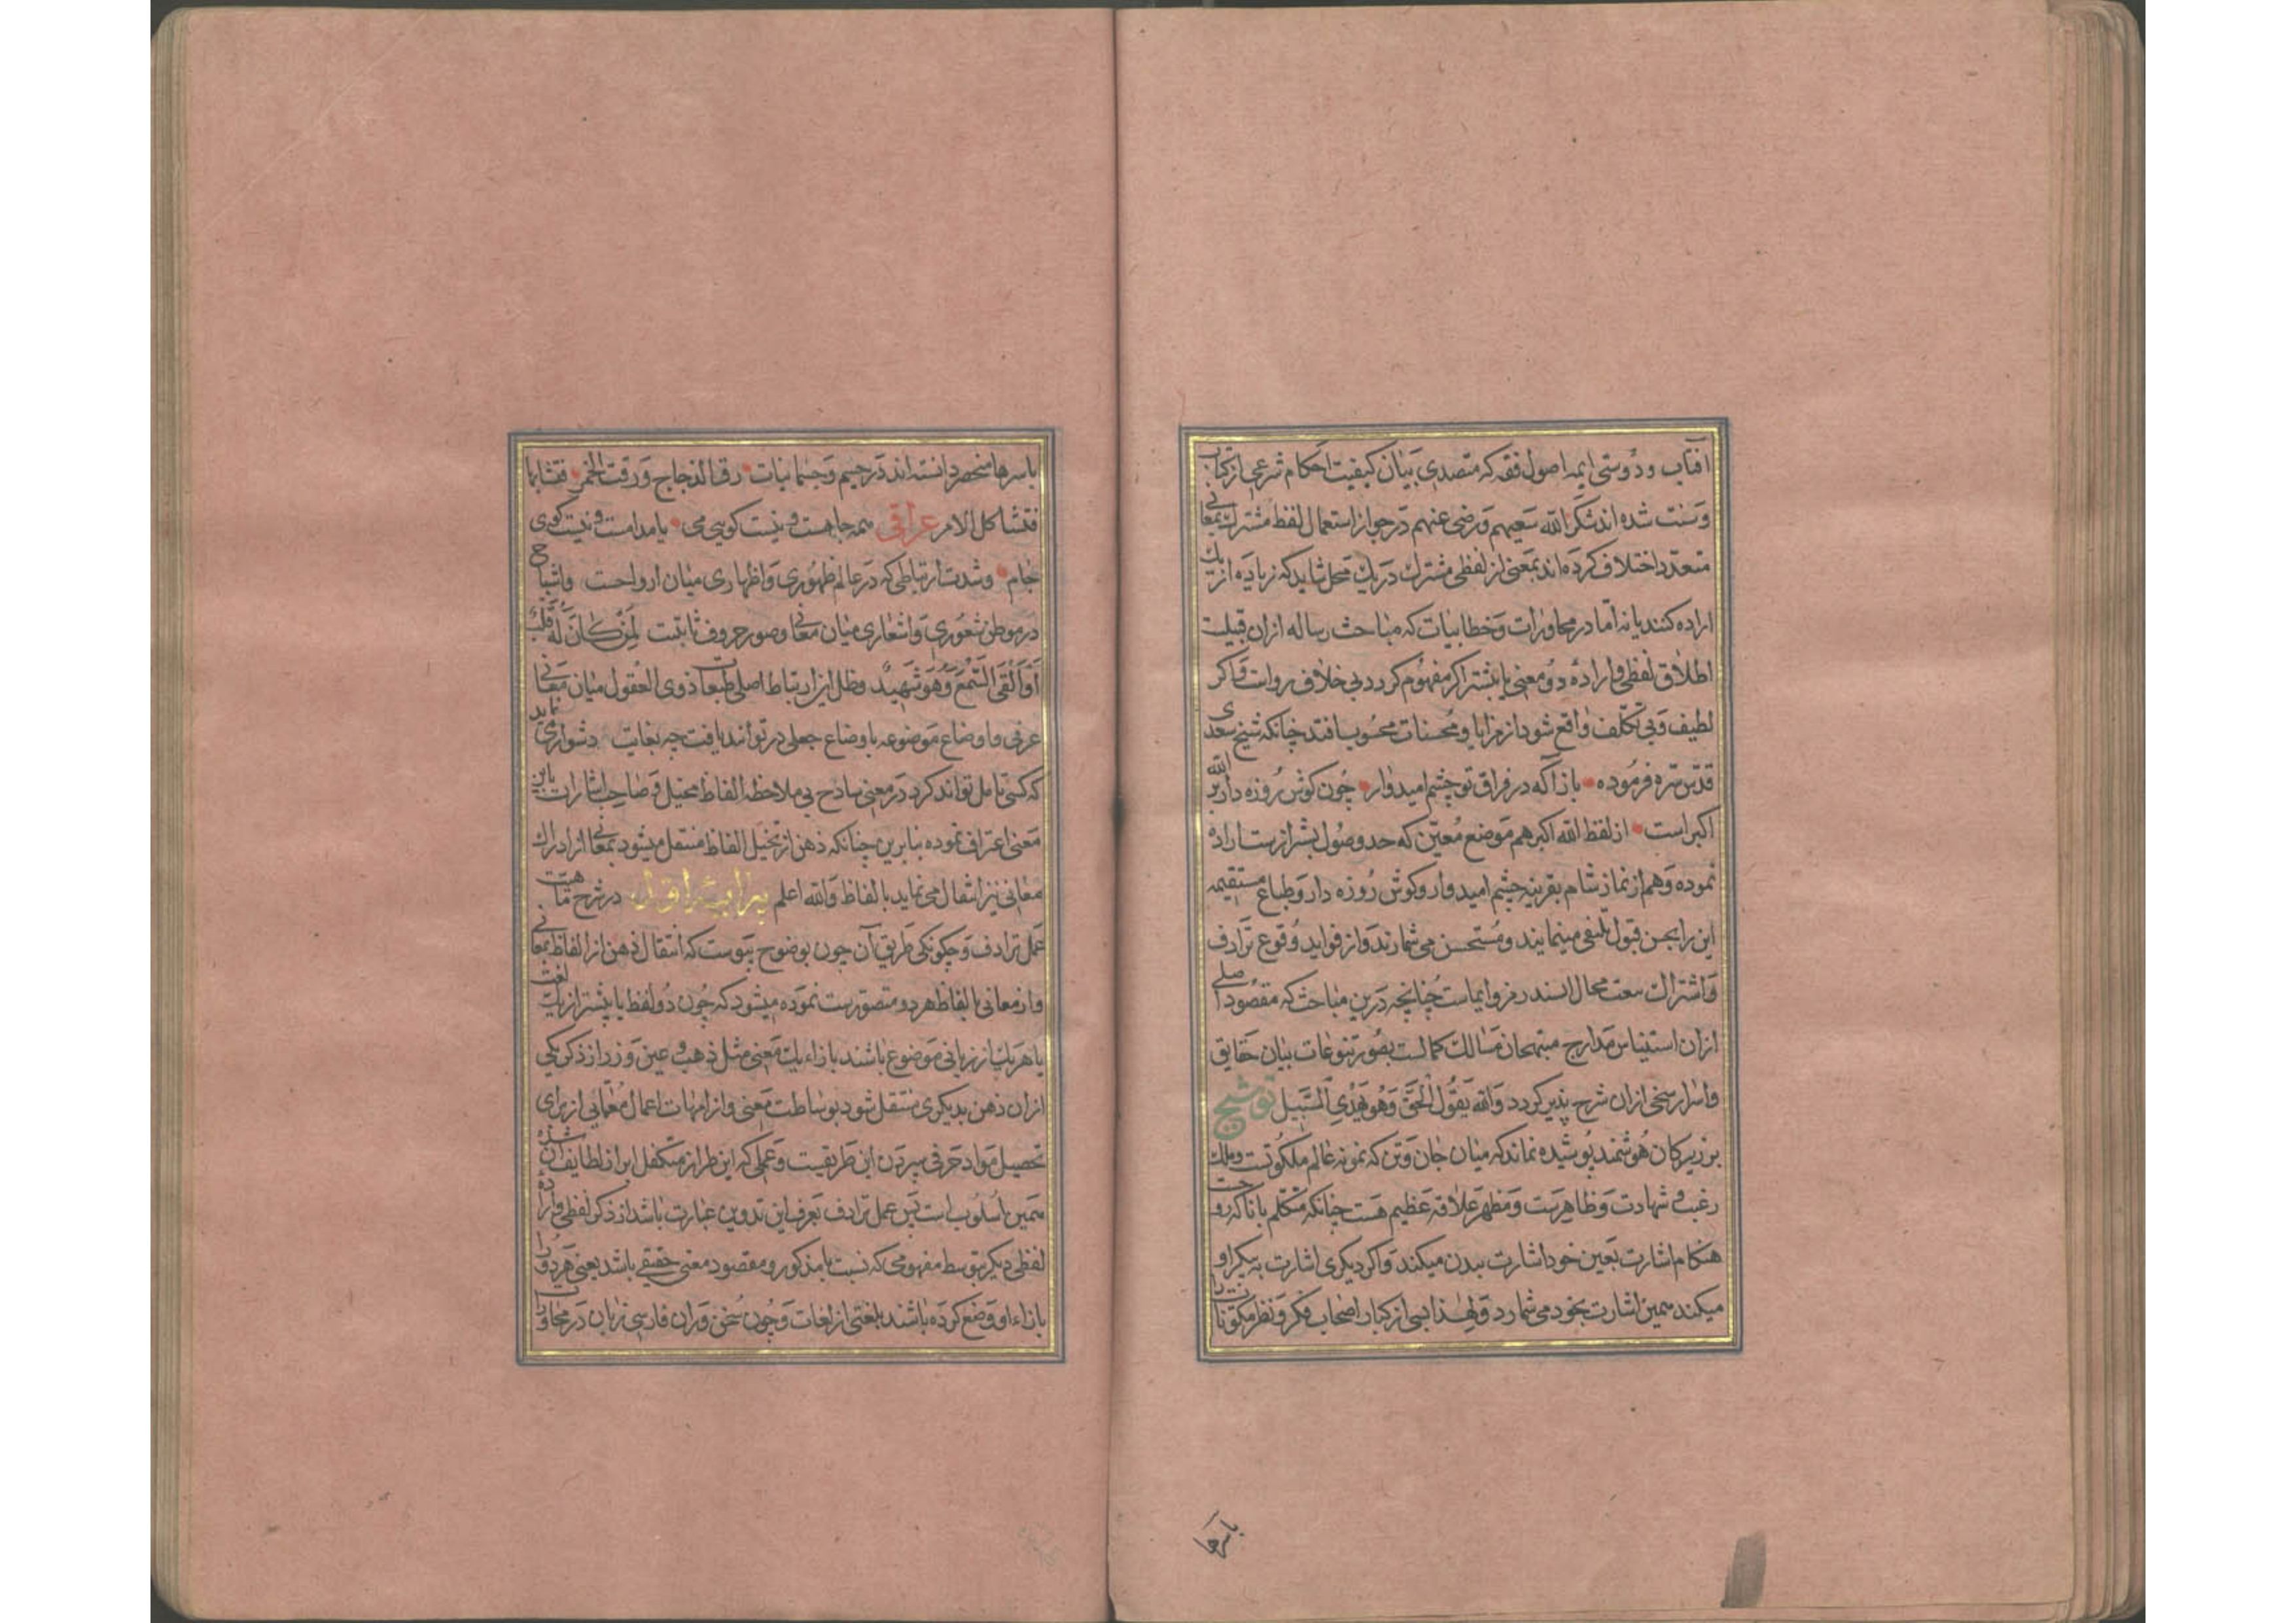 آفتاب و دوستی ایمه اصول فقه که متصدی بیان کیفیت احکام شرعی از کتاب
و سنت شده اند شکر الله سعیهم و رضی عنهم در جواز استعمال لفظ مشترک بمعانی
متعدد اختلاف کرده اند بمعنی از لفظی مشترک در یک محل شاید که زیاده از یک
اراده کنند یا نه اما در محاورات و خطابیات که مباحث رساله ازان قبیلست
اطلاق لفظی و اراده دو معنی یا بیشتر اگر مفهوم گردد بی خلاف رواست و اگر
لطیف و بی تکلف واقع شود از مزایا و محسنات محسوب افتد چنانکه شیخ سعدی
قدس سره فرموده باز آ که در فراق تو چشم امیدوار چون گوش روزه دار بر الله
اکبر است از لفظ الله اکبر هم موضع معین که حد وصول بشر ازست اراده
نموده و هم از نماز شام بقرینه چشم امیدوار و گوش روزه دار و طباع مستقیمه
این را بحسن قبول تلقی مینمایند و مستحسن می شمارند و از فواید وقوع ترادف
و اشتراک سعت مجال السند رمز و ایماست چنانچه درین مباحث که مقصود اصلی
ازان استیناس مدارج مبتهجان مسالک کمالست بصور تنوعات بیان حقایق
و اسرار سخی ازان شرح پذیر گردد والله یقول الحق وهو یهدی السبیل توشیح
بر زیرکان هوشمند پوشیده نماند که میان جان و تن که نمونه عالم ملکوتست و ملک
و غیب و شهادت و ظاهرست و مظهر علاقه عظیم هست چنانکه متکلم با ناکه روحست
هنگام اشارت بعین خود اشارت ببدن میکند و اگر دیگری اشارت به پیکر او
میکند همین اشارت بخود می شمارد و لهذا بسی از کبار اصحاب فکر و نظر مکونات را
باسرها
باسرها منحصر دانسته اند در جسم و جسمانیات رق الزجاج و رقت الخمر فتشابها
فتشاکل الامر عراقی همه جامست و نیست گویی می یا مدامست و نیست گویی
جام و شدت ارتباطی که در عالم ظهوری و اظهاری میان ارواحست و اشباح
در موطن شعوری و اشعاری میان معانی و صور حروف ثابتست لمن کان له قلب
او القی السمع وهو شهید و ظل این ارتباط اصلی طبعا ذوی العقول میان معانی
عرفی و اوضاع موضوعه باوضاع جعلی در توانند یافت چه بغایت دشوار نماید
که کسی تامل تواند کرد در معنی ساذج بی ملاحظه الفاظ مخیل و صاحب اشارات باین
معنی اعتراف نموده بنابرین چنانکه ذهن از تخیل الفاظ منتقل میشود بمعانی از ادراک
معانی نیز انتقال می نماید بالفاظ والله اعلم پیرایه اول در شرح ماهیت
عمل ترادف و چگونگی طریق آن چون بوضوح پیوست که انتقال ذهن از الفاظ بمعانی
و از معانی بالفاظ هر دو متصورست نموده میشود که چون دو لفظ یا بیشتر از یک لغت
یا هر یک از زبانی موضوع باشند بازاء یک معنی مثل ذهب و عین و زر از ذکر یکی
ازان ذهن بدیگری منتقل شود بوساطت معنی و از امهات اعمال معمایی از برای
تحصیل مواد حرفی سپردن این طریقست و عملی که این طراز متکفل ابراز لطایف آن شده
همین اسلوب است پس عمل ترادف بعرف این تدوین عبارت باشد از ذکر لفظی و اراده
لفظی دیگر بتوسط مفهومی که نسبت با مذکور و مقصود معنی حقیقی باشد یعنی هر دو را
بازاء او وضع کرده باشند بلغتی از لغات و چون سخن وران فارسی زبان در محاورات